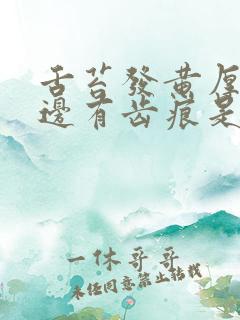 舌苔發黄厚
邊有齿痕是
一休哥哥
未经同意禁止转载